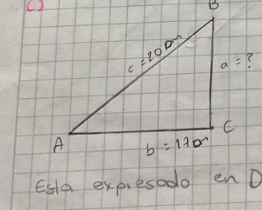 B
c = 20 Dm
a = ?
A
C
b = 17 Dm
Esta expresado en D